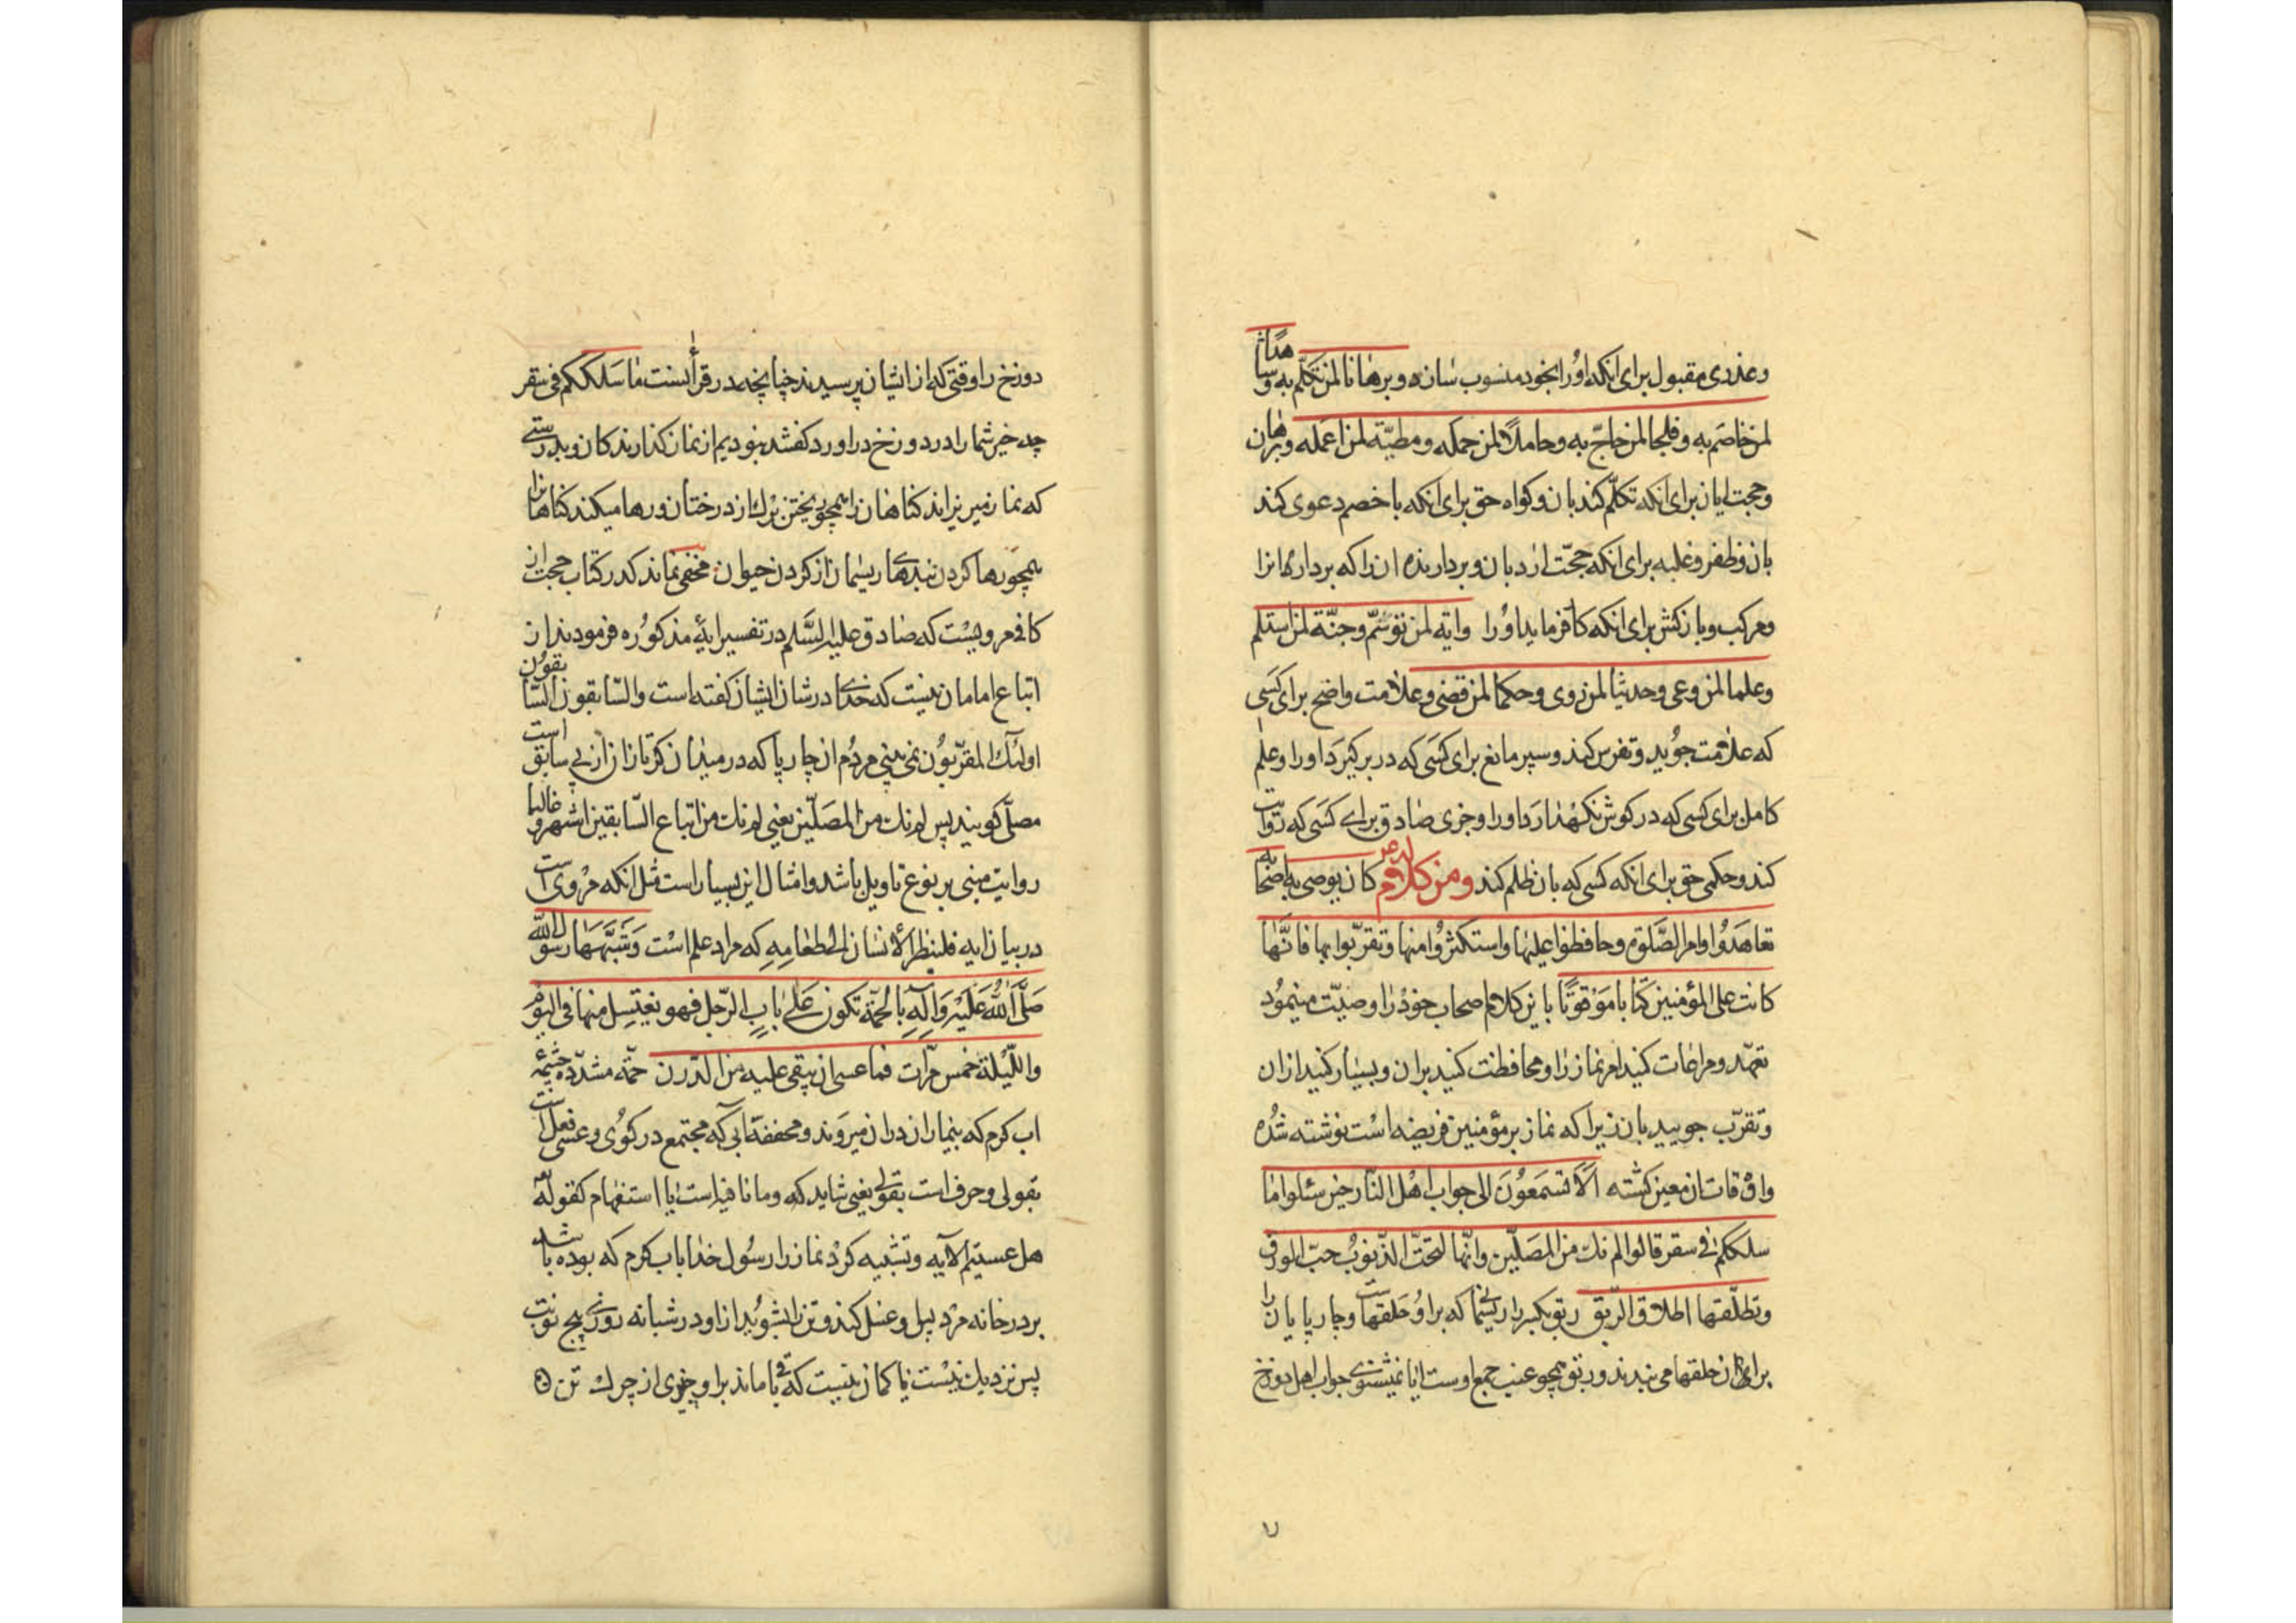 وعذری مقبول برای انکه اورا بخود منسوب سازد وبرهانا لمن تکلّم به وشاهدًا
لمن خاصم به وفلجا لمن حاجّ به وحاملًا لمن حمله ومطیّة لمن اعمله وبرهان
وحجت ایان برای انکه تکلّم کند بان وکواه حق برای انکه با خصم دعوی کند
بان وظفر وغلبه برای انکه حجّت ارد بان وبردارنده انرا که بردارد انرا
ومرکب وبازکش برای انکه کار فرماید اورا وایة لمن توسّم وجنّة لمن استلم
وعلما لمن وعی وحدیثا لمن روی وحکما لمن قضی وعلامت واضح برای کسی
که علامت جوید وتفرس کند وسپر مانع برای کسی که در بر کیرد اورا وعلم
کامل برای کسی که در کوش نکهدارد اورا وخبری صادق برای کسی که روایت
کند وحکمی حق برای انکه کسی که بان ظلم کند ومن کلام له کان یوصی به اصحابه
تعاهدوا امر الصّلوة وحافظوا علیها واستکثروا منها وتقرّبوا بها فانّها
کانت علی المؤمنین کتابا موقوتًا باین کلام اصحاب خود را وصیّت مینمود
تعهّد ومراعات کنید امر نماز را ومحافظت کنید بران وبسیار کنید ازان
وتقرّب جویید بان زیرا که نماز بر مؤمنین فریضه است نوشته شده
واوقات ان معین کشته الا تسمعون الی جواب اهل النّار حین سئلوا ما
سلککم فی سقر قالوا لم نک من المصلّین وانّها لتحتّ الذّنوب حتّ الورق
وتطلّقها اطلاق الرّبق ربق بکسر را ریسمانی که براو حلقهاست وچارپایان را
برای ان حلقها می بندند وربق همچو عنب جمع اوست ایا نمیشنوی جواب اهل دوزخ
٧
دوزخ را وقتی که ازایشان پرسیدند چنانچه در قرآنست ما سلککم فی سقر
چه خبر شما را در دوزخ دراورد کفتند نبودیم از نماز کذارندکان وبدرستی
که نماز میریزاند کناهان را همچو ریختن برک از درختان ورها میکند کناهانرا
همچو رها کردن بندهای ریسمان از کردن حیوان مخفی نماند که در کتاب حجت از
کافی مرویست که صادق علیه السّلم در تفسیر ایهٔ مذکوره فرمودند از
اتباع امامان نیست که خدای در شان ایشان کفته است والسّابقون السّابقون
اولئک المقرّبون نمی بینی مردم ان چارپا که در میدان کرّتازان از پی سابق است
مصلّی کویند پس لم نک من المصلّین یعنی لم نک من اتباع السّابقین اشهر وغالبا
روایت مبنی بر نوع تاویل باشد وامثال این بسیار است مثل انکه مروی است
در بیان ایه فلینظر الانسان الی طعامه که مراد علم است وشبّهها رسول الله
صلّی الله علیه وآله بالحمّة تکون علی باب الرّجل فهو یغتسل منها فی الیوم
واللّیلة خمس مرّات فما عسی ان یبقی علیه من الدّرن حمّة مشدّده چشمهٔ
اب کرم که بیماران دران میروند ومخففه آبی که مجتمع در کوی وعسی فعل است
بقولی وحرف است بقولی یعنی شاید که وما نافیه است یا استفهام کقوله
هل عسیتم الآیه وتشبیه کرد نماز را رسول خدا باب کرم که بوده باشد
بر در خانه مرد پس او غسل کند وتن بشوید ازاو در شبانه روزی پنج نوبت
پس نزدیک نیست یا کمان نیست که باقی ماند براو چیزی از چرک تن